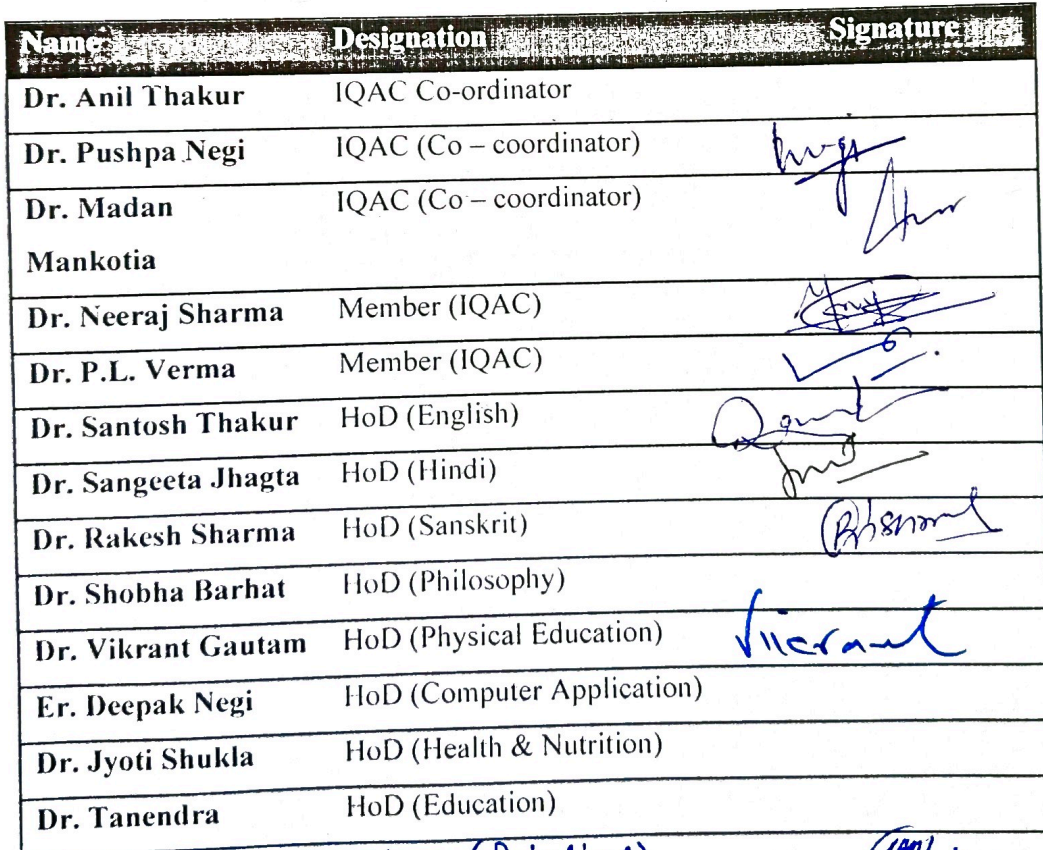 Name Designation Signature
Dr. Anil Thakur IQAC Co-ordinator
Dr. Pushpa Negi IQAC (Co – coordinator)
Dr. Madan IQAC (Co – coordinator)
Mankotia
Dr. Neeraj Sharma Member (IQAC)
Dr. P.L. Verma Member (IQAC)
Dr. Santosh Thakur HoD (English)
Dr. Sangeeta Jhagta HoD (Hindi)
Dr. Rakesh Sharma HoD (Sanskrit)
Dr. Shobha Barhat HoD (Philosophy)
Dr. Vikrant Gautam HoD (Physical Education) Vikrant
Er. Deepak Negi HoD (Computer Application)
Dr. Jyoti Shukla HoD (Health & Nutrition)
Dr. Tanendra HoD (Education)